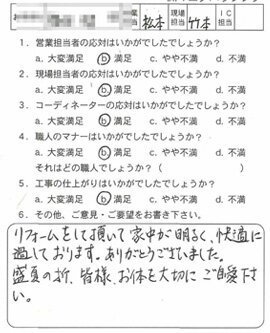 業担当 松本 現場担当 竹本 IC担当
1. 営業担当者の応対はいかがでしたでしょうか？
a. 大変満足 b. 満足 c. やや不満 d. 不満
2. 現場担当者の応対はいかがでしたでしょうか？
a. 大変満足 b. 満足 c. やや不満 d. 不満
3. コーディネーターの応対はいかがでしたでしょうか？
a. 大変満足 b. 満足 c. やや不満 d. 不満
4. 職人のマナーはいかがでしたでしょうか？
a. 大変満足 b. 満足 c. やや不満 d. 不満
それはどの職人でしょうか？（　　　）
5. 工事の仕上がりはいかがでしたでしょうか？
a. 大変満足 b. 満足 c. やや不満 d. 不満
6. その他、ご意見・ご要望をお書き下さい。
リフォームをして頂いて家中が明るく、快適に
過しております。ありがとうございました。
盛夏の折、皆様、お体を大切に ご自愛下さ
い。